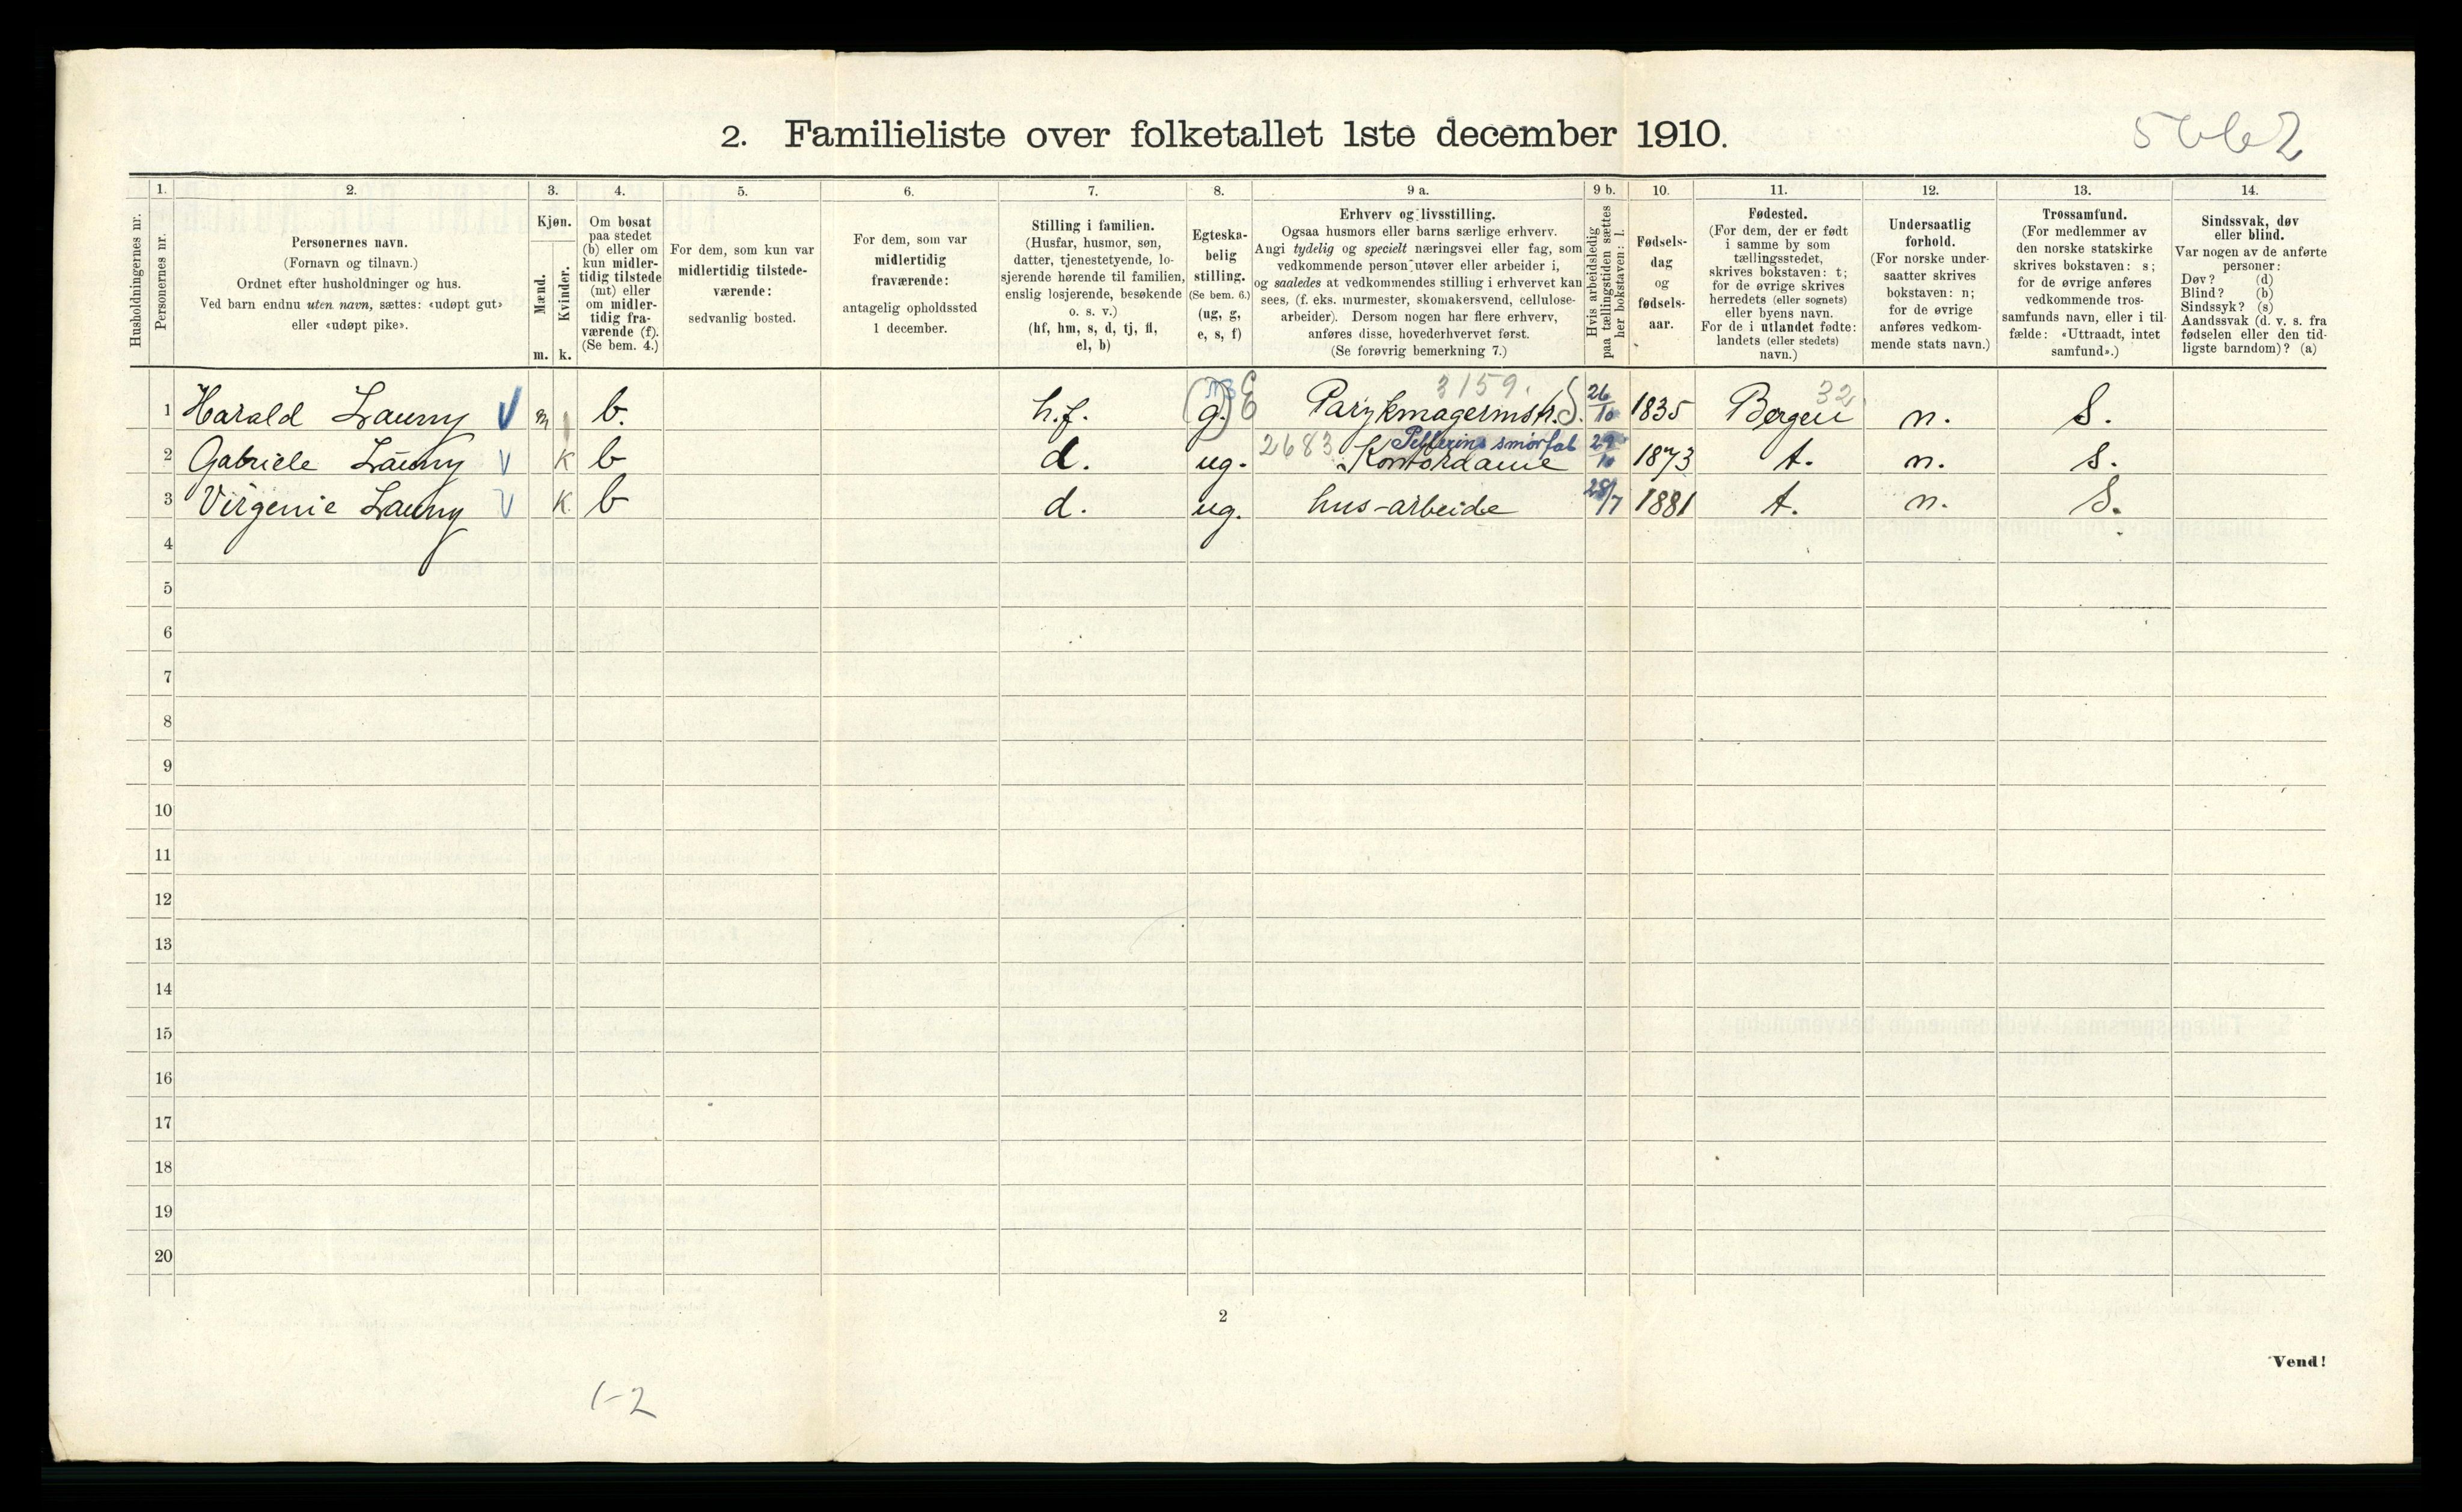 2. Familieliste over folketallet 1ste december 1910.
1. 2. 3. 4. 5. 6. 7. 8. 9 a. 9 b. 10. 11. 12. 13. 14.
Husholdningernes nr.
Personernes nr.
Personernes navn.
(Fornavn og tilnavn.)
Ordnet efter husholdninger og hus.
Ved barn endnu uten navn, sættes: «udøpt gut»
eller «udøpt pike».
Kjøn.
Mænd.
Kvinder.
m. k.
Om bosat
paa stedet
(b) eller om
kun midler-
tidig tilstede
(mt) eller
om midler-
tidig fra-
værende (f).
(Se bem. 4.)
For dem, som kun var
midlertidig tilstede-
værende:
sedvanlig bosted.
For dem, som var
midlertidig
fraværende:
antagelig opholdssted
1 december.
Stilling i familien.
(Husfar, husmor, søn,
datter, tjenestetyende, lo-
sjerende hørende til familien,
enslig losjerende, besøkende
o. s. v.)
(hf, hm, s, d, tj, fl,
el, b)
Egteska-
belig
stilling.
(Se bem. 6.)
(ug, g,
e, s, f)
Erhverv og livsstilling.
Ogsaa husmors eller barns særlige erhverv.
Angi tydelig og specielt næringsvei eller fag, som
vedkommende person utøver eller arbeider i,
og saaledes at vedkommendes stilling i erhvervet kan
sees, (f. eks. murmester, skomakersvend, cellulose-
arbeider). Dersom nogen har flere erhverv,
anføres disse, hovederhvervet først.
(Se forøvrig bemerkning 7.)
Hvis arbeidsledig
paa tællingstiden sættes
her bokstaven: l.
Fødsels-
dag
og
fødsels-
aar.
Fødested.
(For dem, der er født
i samme by som
tællingsstedet,
skrives bokstaven: t;
for de øvrige skrives
herredets (eller sognets)
eller byens navn.
For de i utlandet fødte:
landets (eller stedets)
navn.)
Undersaatlig
forhold.
(For norske under-
saatter skrives
bokstaven: n;
for de øvrige
anføres vedkom-
mende stats navn.)
Trossamfund.
(For medlemmer av
den norske statskirke
skrives bokstaven: s;
for de øvrige anføres
vedkommende tros-
samfunds navn, eller i til-
fælde: «Uttraadt, intet
samfund».)
Sindssvak, døv
eller blind.
Var nogen av de anførte
personer:
Døv? (d)
Blind? (b)
Sindssyk? (s)
Aandssvak (d. v. s. fra
fødselen eller den tid-
ligste barndom)? (a)
3159. 32
1 Harald Launy V m b. h.f. (g.) E Parykmagermstr. S. 26/10 1835 Bergen n. S.
Pellerins smørfab
2 Gabriele Launy V K b d. ug. 2683 Kontordame 29/10 1873 t. n. s.
3 Virgenie Launy V K. b d. ug. hus-arbeide 28/7 1881 t. n. S.
4
5
6
7
8
9
10
11
12
13
14
15
16
17
18
19
20
2
Vend!
1-2